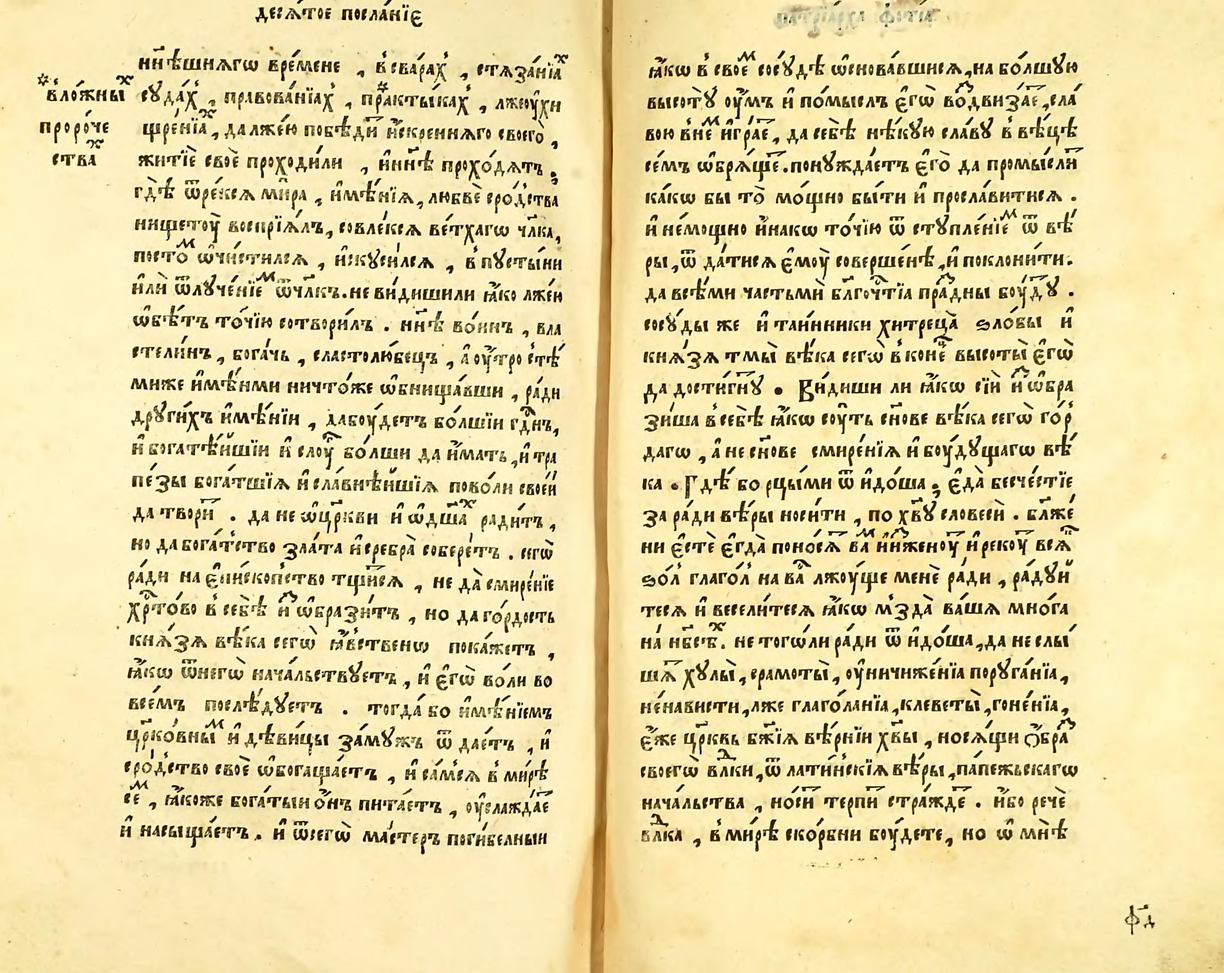 десѧ́тое посла́нїє
нн҃ѣшнѧгѡ времене , в̾ сва́рах̾ , стѧза́нїа ͯ
*в̾ло́жны ͯ
сꙋда́х̾ , правова́нїах̾ , *пра́ктыках̾ , лжеоу҆хи
проро́че
щре́нїа ͯ , да лже́ю побѣди́ и҆́скреннѧго своего̀ ,
ства ͯ
житїѐ своѐ проходи́ли , и҆ нн҃ѣ прохо́дѧтъ .
гдѣ́ ѿре́ксѧ ми́ра , и҆мѣ́нїѧ , любвѐ сро́дства
нищетоу̀ воспрїѧ́лъ , совле́ксѧ ве́тхагѡ чл҃ка ,
посто́ ᷟ ѡ҆чи́стилсѧ , и҆скуси́лсѧ , в̾ пусты́ни
и҆лѝ ѿлуче́нїе ᷟ ѿ чл҃къ . не ви́диши ли ꙗ҆́ко лже́и
ѡ҆бѣ́тъ то́чїю сотвори́лъ . нн҃ѣ во́инъ , вла
стели́нъ , бога́чь , сластолю́бецъ , а҆ оу҆́тро с тѣ́
миже и҆мѣ́ньми ничто́же ѡ҆бнища́вши , ра́ди
други́хъ и҆мѣ́нїи , да бо́удетъ бо́лшїи гд҃нъ ,
и҆ богатѣ́йшїи и҆ слоу́ г бо́лши да и҆́мать , и҆ тра
пе́зы бога́тшїѧ и҆ славнѣ́йшїѧ по во́ли свое́й
да твори́ т . да не ѡ҆ цр҃кви и҆ ѡ҆ дш҃а ͯ ради́тъ ,
но да бога́тство зла́та и҆ сребра̀ собере́тъ . сегѡ̀
ра́ди на є҆пи́скопство тщи́тсѧ , не да̀ смире́нїе
хр҃то́во в̾ себѣ̀ и҆з̾ѡ҆брази́тъ , но да го́рдость
кнѧ́зѧ вѣ́ка сегѡ̀ ꙗ҆́вственѡ пока́жетъ ,
ꙗ҆́кѡ ѿ него̀ нача́льствꙋетъ , и҆ є҆гѡ̀ во́ли во
все́мъ послѣ́дꙋетъ . тогда̀ бо и҆мѣ́нїемъ
цр҃ко́вны ᷟ и҆ дѣви́цы за́мꙋжъ ѿ дае́тъ , и҆
сро́дство своѐ ѡ҆богаща́етъ , и҆ са́мсѧ в̾ ми́рѣ
се́ ᷟ , ꙗ҆́коже бога́тыи о҆́нъ пита́етъ , оу҆слажда́е т
и҆ насыща́етъ . и҆ ѿ сегѡ̀ ма́стеръ поги́белныи
ꙗ҆́кѡ в̾ свое́ ᷟ сосꙋ́дѣ ѡ҆снова́вшисѧ , на бо́лшꙋю
высотꙋ̀ оу҆́мъ и҆ по́мыслъ є҆гѡ̀ во̀двиза́е т , сла́
вою в̾ не́ ᷟ и҆гра́е т , да себѣ̀ нѣ́кꙋю сла́вꙋ в̾ вѣ́цѣ
се́мъ ѡ҆брѧ́ще т . понꙋжда́етъ є҆го̀ да промы́сли т
ка́кѡ бы то̀ мо́щно бы́ти и҆ просла́витисѧ .
и҆ не́мощно и҆на́кѡ то́чїю ѿ ступле́нїе ᷟ ѿ вѣ́
ры , ѿ да́тисѧ є҆моу̀ соверше́нѣ , и҆ поклони́ти с .
да всѣ́ми частьмѝ бл҃гоч҃тїа пра́здны бо́удꙋ т .
сосꙋ́ды же и҆ таи́нники хитреца̀ ѕло́бы и҆
кнѧ́зѧ тмы̀ вѣ́ка сегѡ̀ в̾ коне́ ц высоты̀ є҆гѡ̀
да дости́гнꙋ т . Ви́диши ли ꙗ҆́кѡ сїѝ и҆з̾ѡ҆бра
зи́ша в̾ себѣ̀ ꙗ҆́кѡ соу́ть сн҃ове вѣ́ка сегѡ̀ го́р
дагѡ , а҆ не сн҃ове смире́нїѧ и҆ бо́удꙋщагѡ вѣ́
ка . Гдѣ́ бо рцы́ ми ѿ и҆до́ша ; є҆да̀ бесче́стїе
за ра́ди вѣ́ры носи́ти , по хв҃ꙋ словеси́ . бл҃же́
ни є҆стѐ є҆гда̀ поно́сѧ т ва́ ᷟ и҆ и҆зженоу́ т и҆ рекоу́ т всѧ́ к
ѕо́л глаго́л на ва̀ лжоу́ще менѐ ра́ди , ра́дꙋй
тесѧ и҆ весели́тесѧ ꙗ҆́кѡ м̾зда̀ ва́шѧ мно́га
на нб҃се ͯ . не тогѡ́ ли ра́ди ѿ и҆до́ша , да не слы́
ша т хꙋлы̀ , срамоты̀ , оу҆ничиже́нїа порꙋга́нїа ,
не́нависти , лже глаго́ланїа , клеветы̀ , гоне́нїа ,
є҆́же цр҃квь бж҃їѧ вѣ́рнїи хв҃ы , носѧ́щи ѻ҆́бра з
своегѡ̀ вл҃ки , ѿ лати́нскїѧ вѣ́ры , па́пежьскагѡ
нача́льства , но́си т терпи́ т стра́жде т . и҆́бо речѐ
вл҃ка , в̾ ми́рѣ ско́рбни бо́удете , но ѡ҆ мнѣ̀
ф҃д